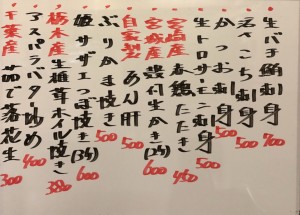 ・生バチ鮪刺身 700
・活〆こち刺身 500
・かつお刺身 500
・生トロサーモン刺身 500
・宮崎産 春鶏たたき 480
・宮城産 殻付生かき(2ヶ) 600
・自家製 あん肝 500
・ぶりかま焼き 500
・姫サザエつぼ焼き(3ヶ) 600
・栃木産 生椎茸ホイル焼き 380
・アスパラバター炒め 400
・千葉産 茹で落花生 300